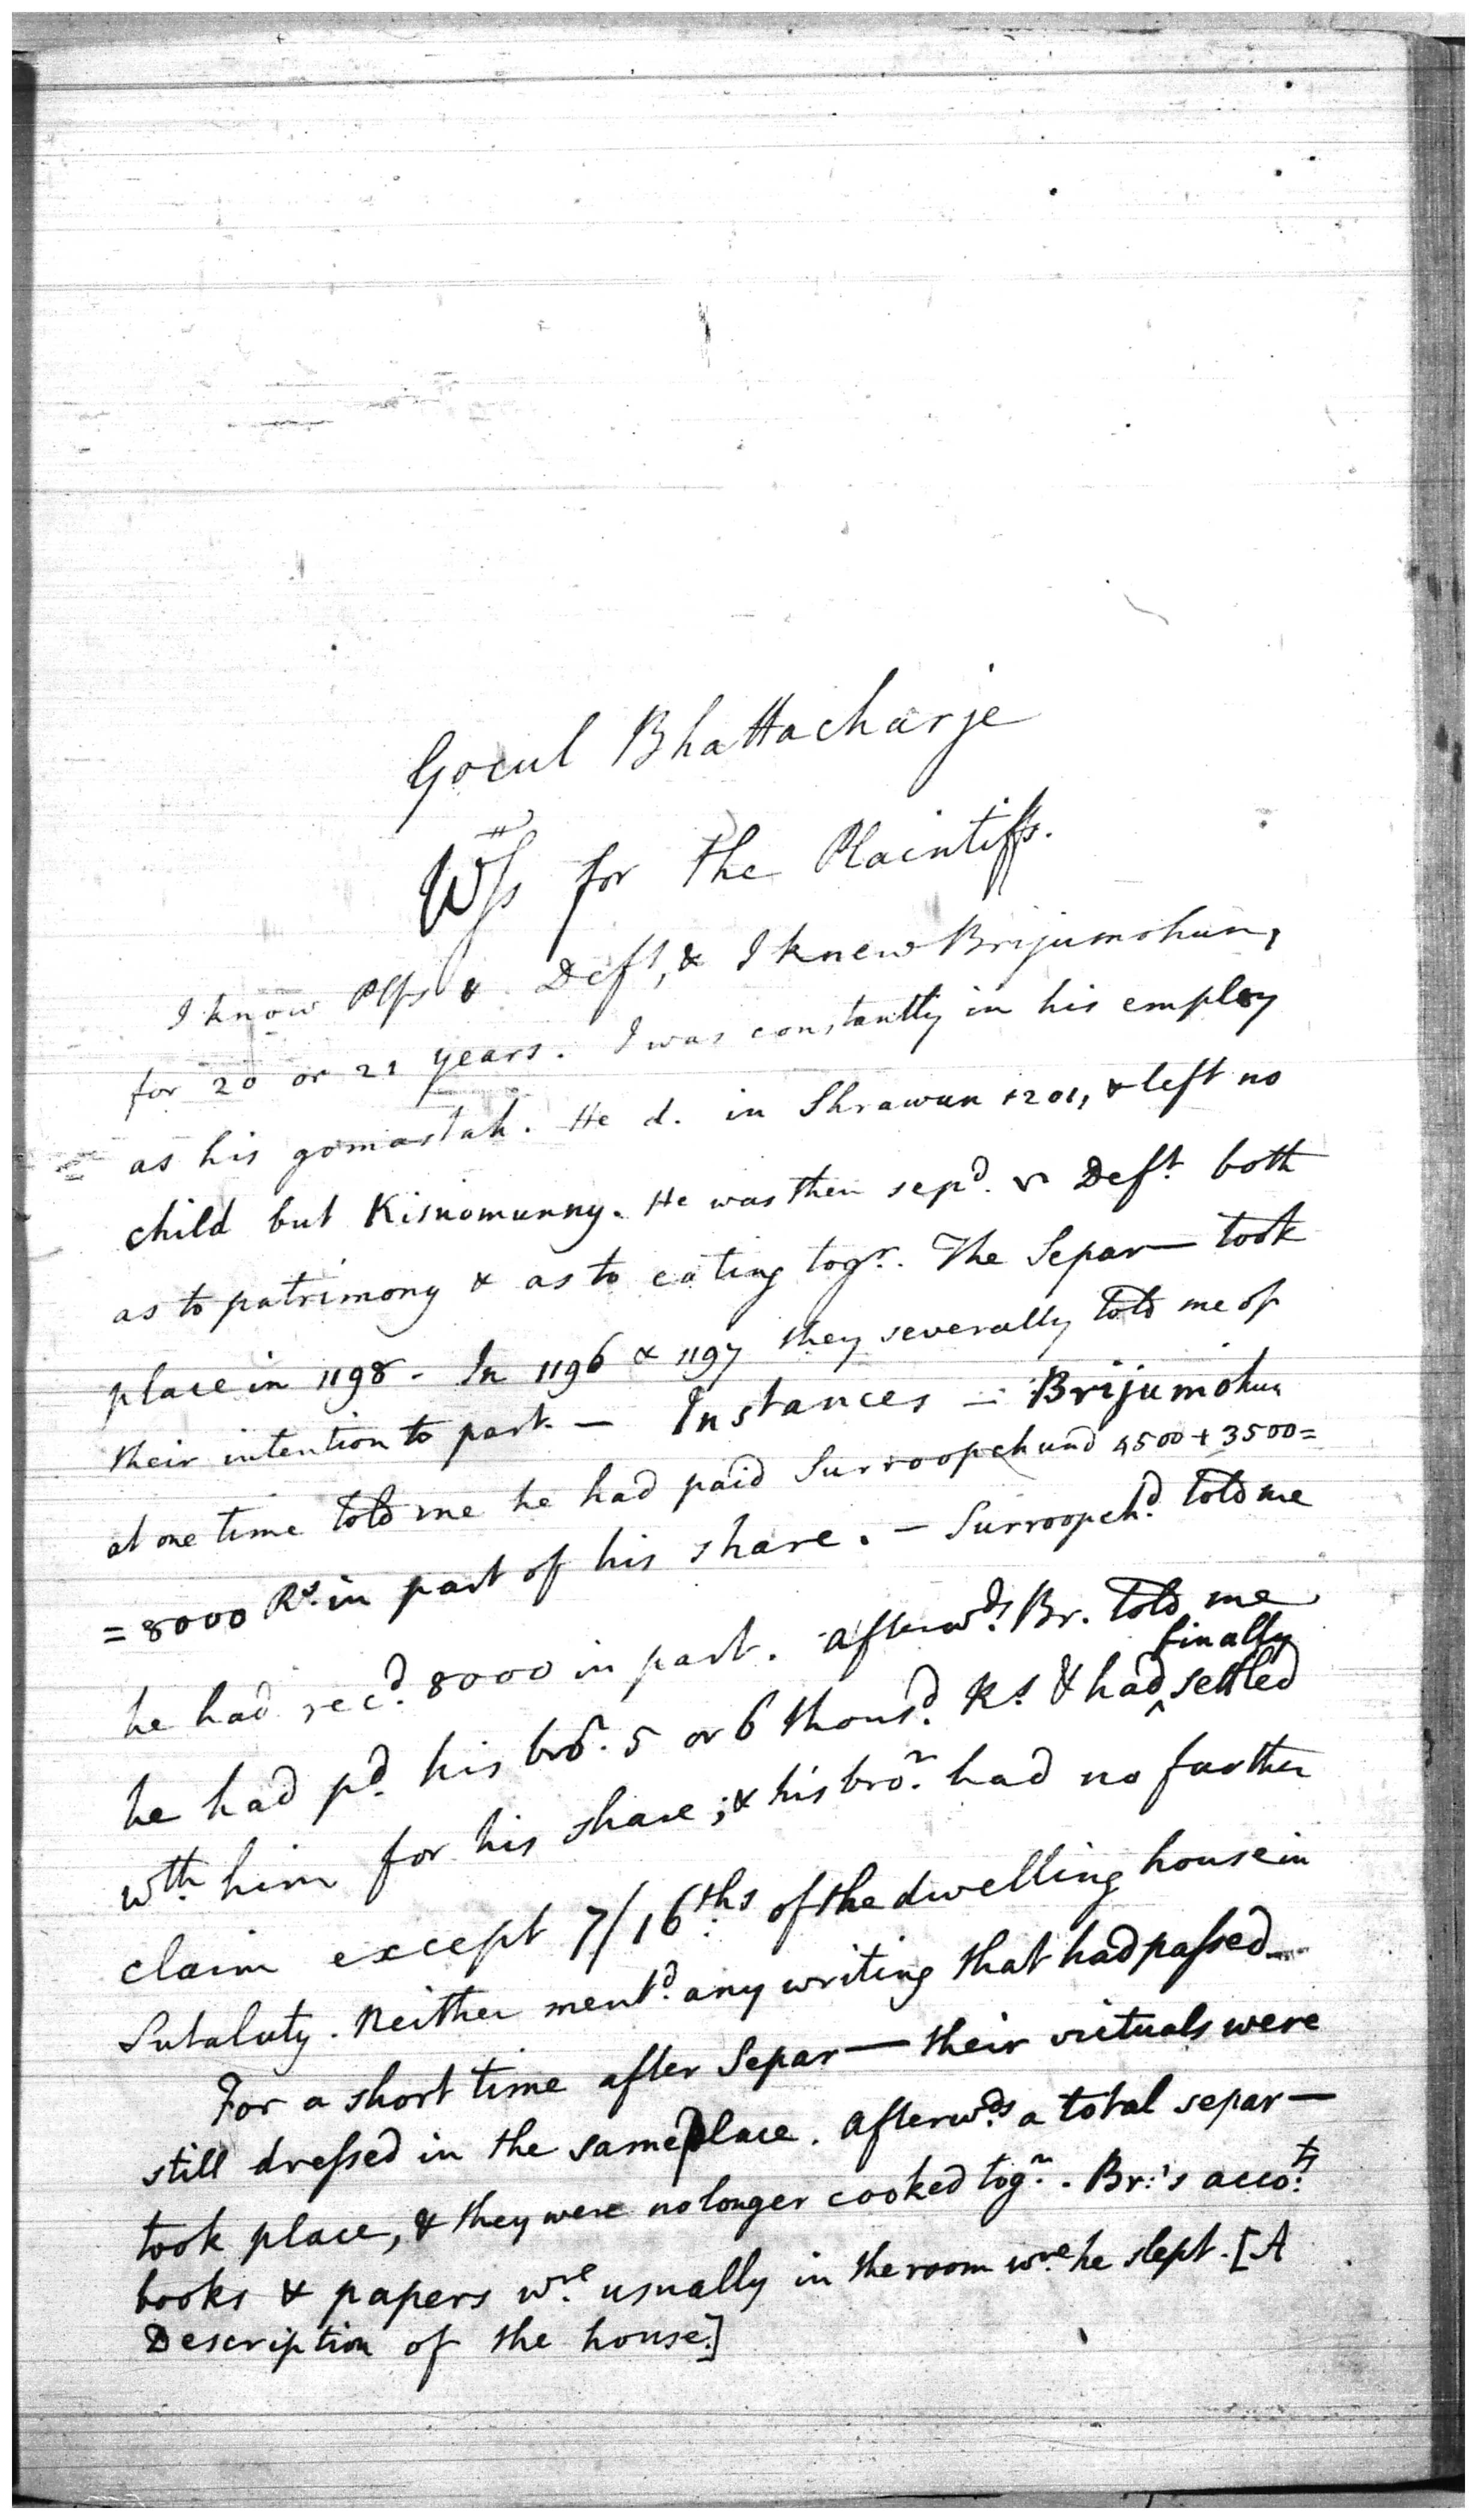 Gocul Bhattacharje
Wss for the Plaintiffs.
I know Plfs & Deft, & I knew Brijumohun,
for 20 or 21 years. I was constantly in his employ
as his gomastah. He d. in Shrawun 1201, & left no
child but Kisnomunny. He was then sepd. Deft. both
as to patrimony & as to eating togr. The Separ— took
place in 1198 - In 1196 & 1197 they severally told me of
their intention to part. — Instances — Brijumohun
at one time told me he had paid Surroopchund 4500 + 3500 =
= 8000 Rs. in part of his share. — Surroopchd. told me
he had recd. 8000 in part. afterwds. Br. told me
he had pd. his bror. 5 or 6 thousd. Rs & had ^finally settled
wth. him for his share; & his bror. had no further
claim except 7/16ths. of the dwelling house in
Sutaluty. Neither mentd. any writing that had passed—
For a short time after Separ— their victuals were
still dressed in the same place. afterwds. a total separ—
took place, & they were no longer cooked togr. . Br.'s accots.
books & papers wre. usually in the room wre. he slept. [A
Description of the house.]